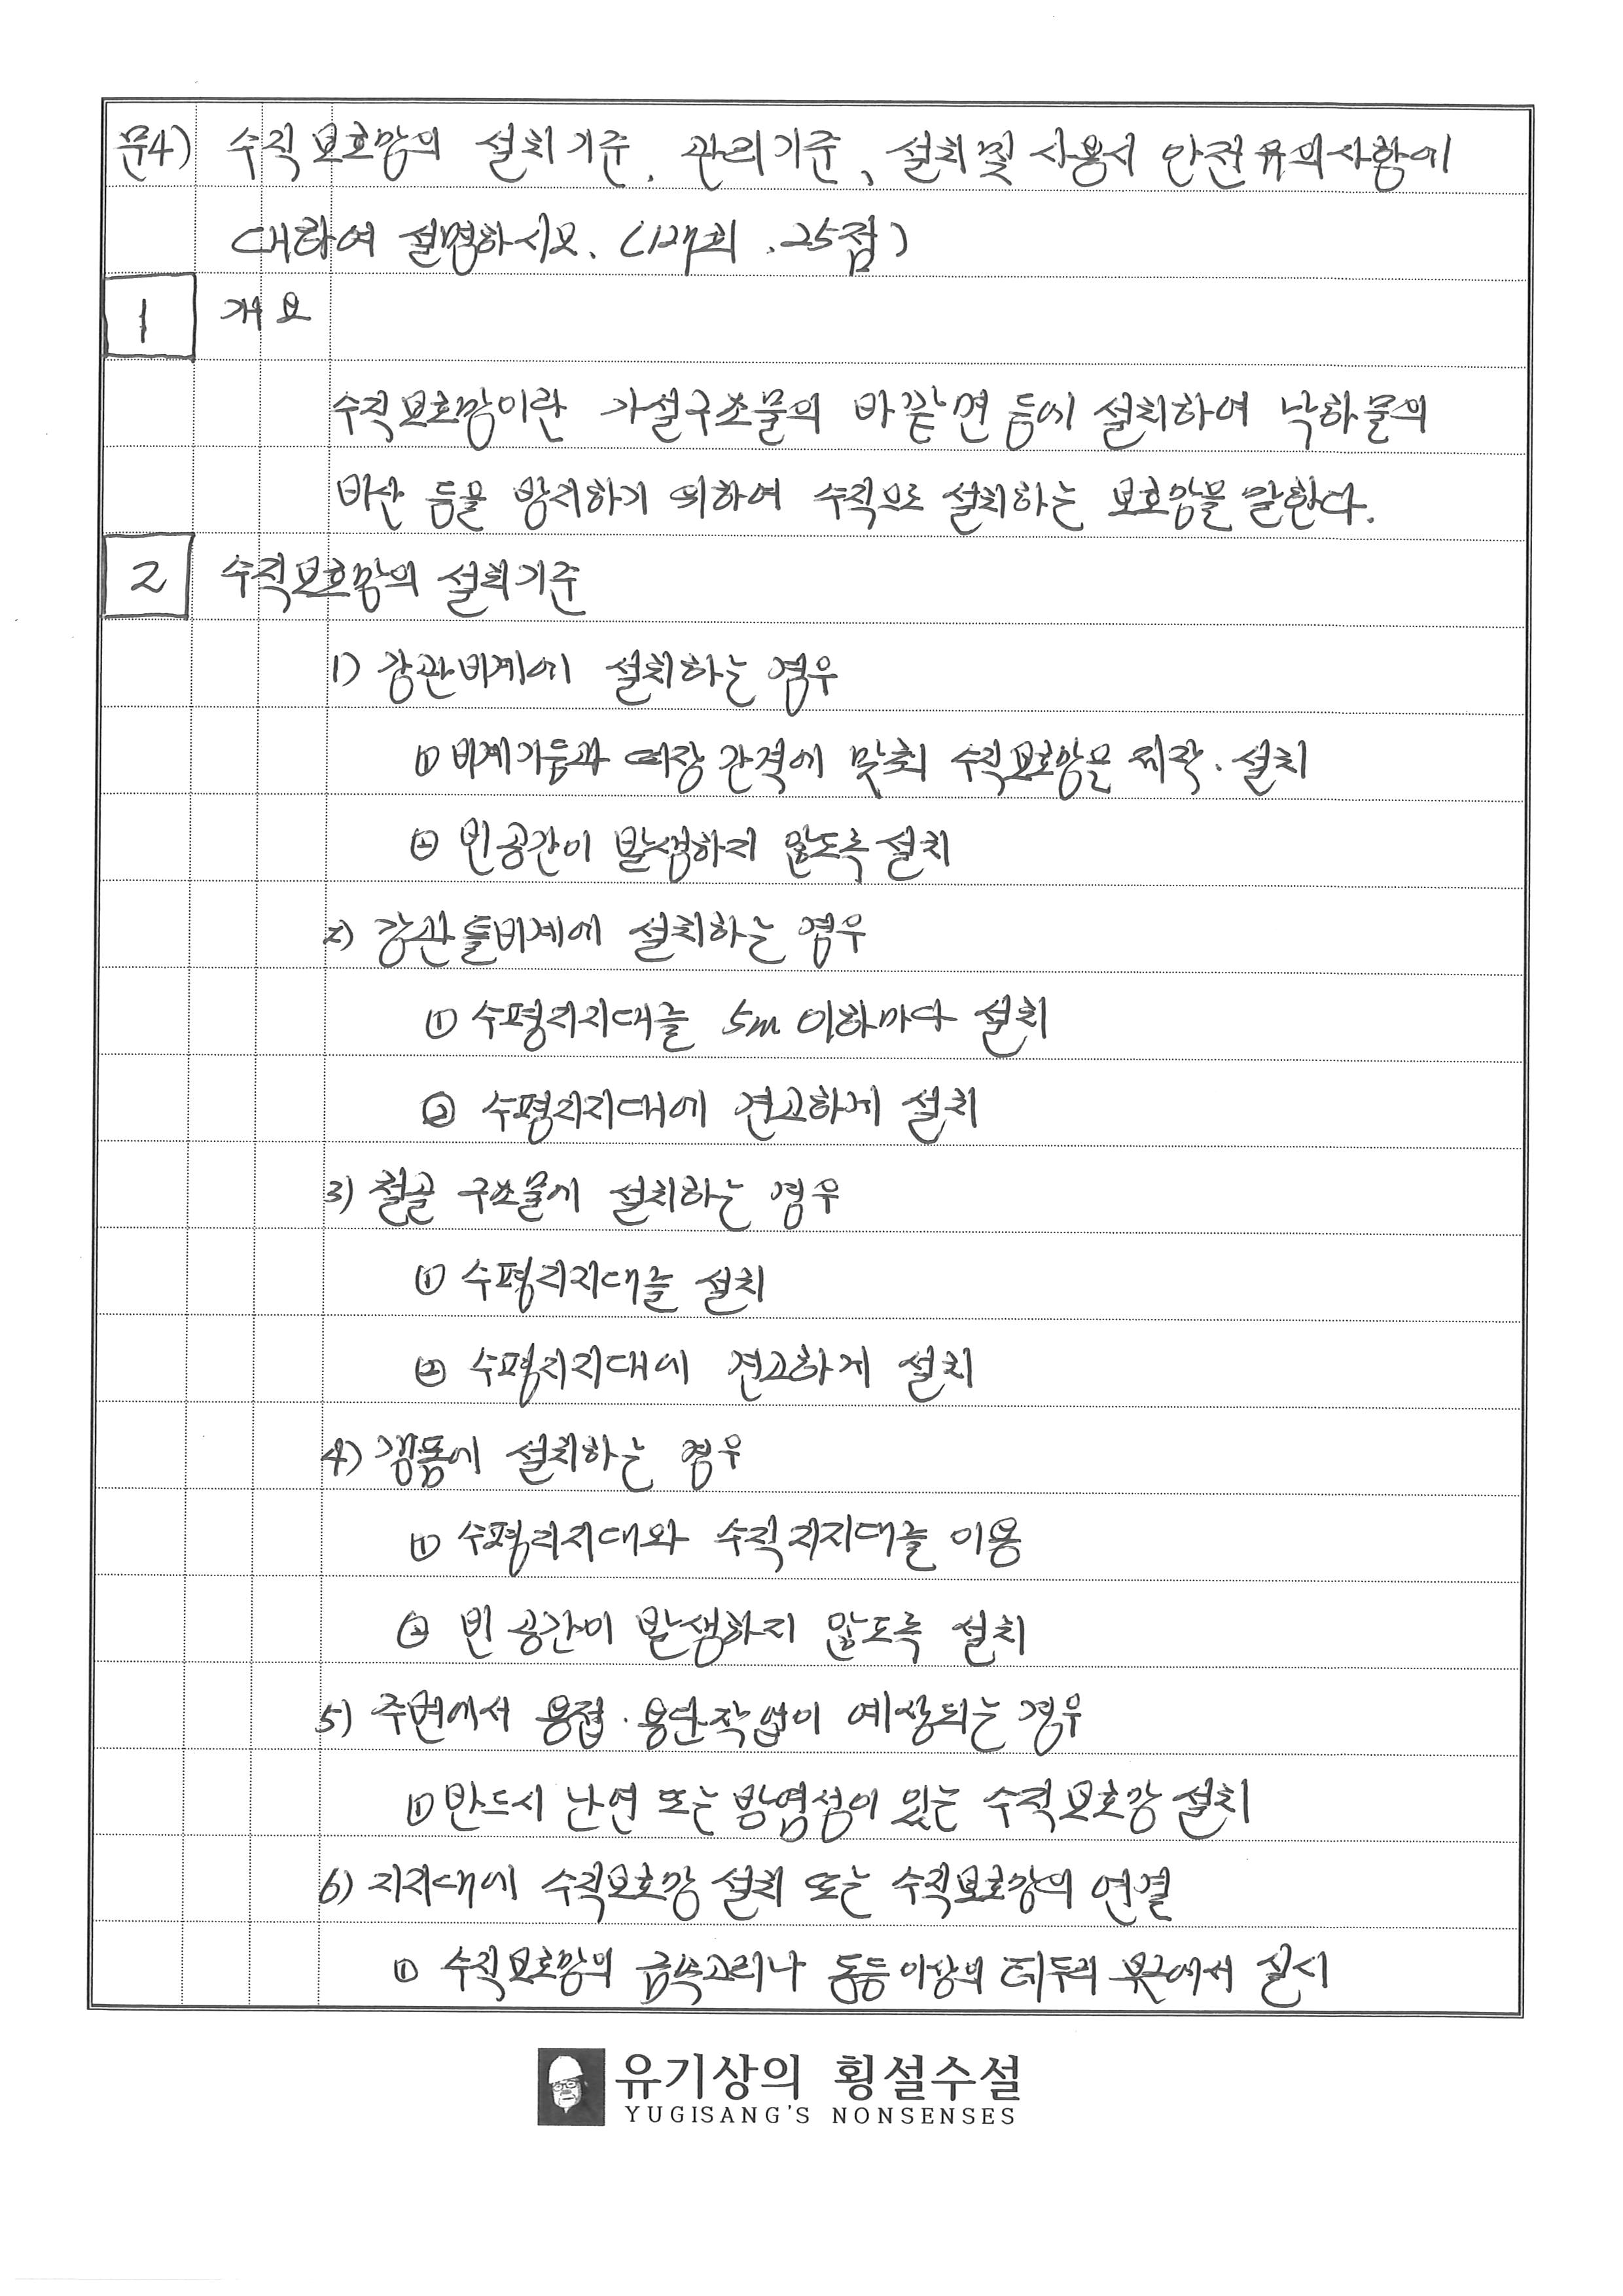 문4) 수직보호망의 설치기준, 관리기준, 설치및 사용시 안전유의사항에
대하여 설명하시오. (127회, 25점)
1 개요
수직보호망이란 가설구조물의 바깥면 등에 설치하여 낙하물의
비산 등을 방지하기 위하여 수직으로 설치하는 보호망을 말한다.
2 수직보호망의 설치기준
1) 강관비계에 설치하는 경우
① 비계기둥과 띠장 간격에 맞춰 수직보호망을 제작·설치
② 빈공간이 발생하지 않도록 설치
2) 강관틀비계에 설치하는 경우
① 수평지지대를 5m 이하마다 설치
② 수평지지대에 견고하게 설치
3) 철골 구조물에 설치하는 경우
① 수평지지대를 설치
② 수평지지대에 견고하게 설치
4) 갱폼에 설치하는 경우
① 수평지지대와 수직지지대를 이용
② 빈 공간이 발생하지 않도록 설치
5) 주변에서 용접·용단작업이 예상되는 경우
① 반드시 난연 또는 방염성이 있는 수직보호망 설치
6) 지지대에 수직보호망 설치 또는 수직보호망의 연결
① 수직보호망의 금속고리나 동등이상의 테두리 부근에서 실시
유기상의 횡설수설
YUGISANG'S NONSENSES